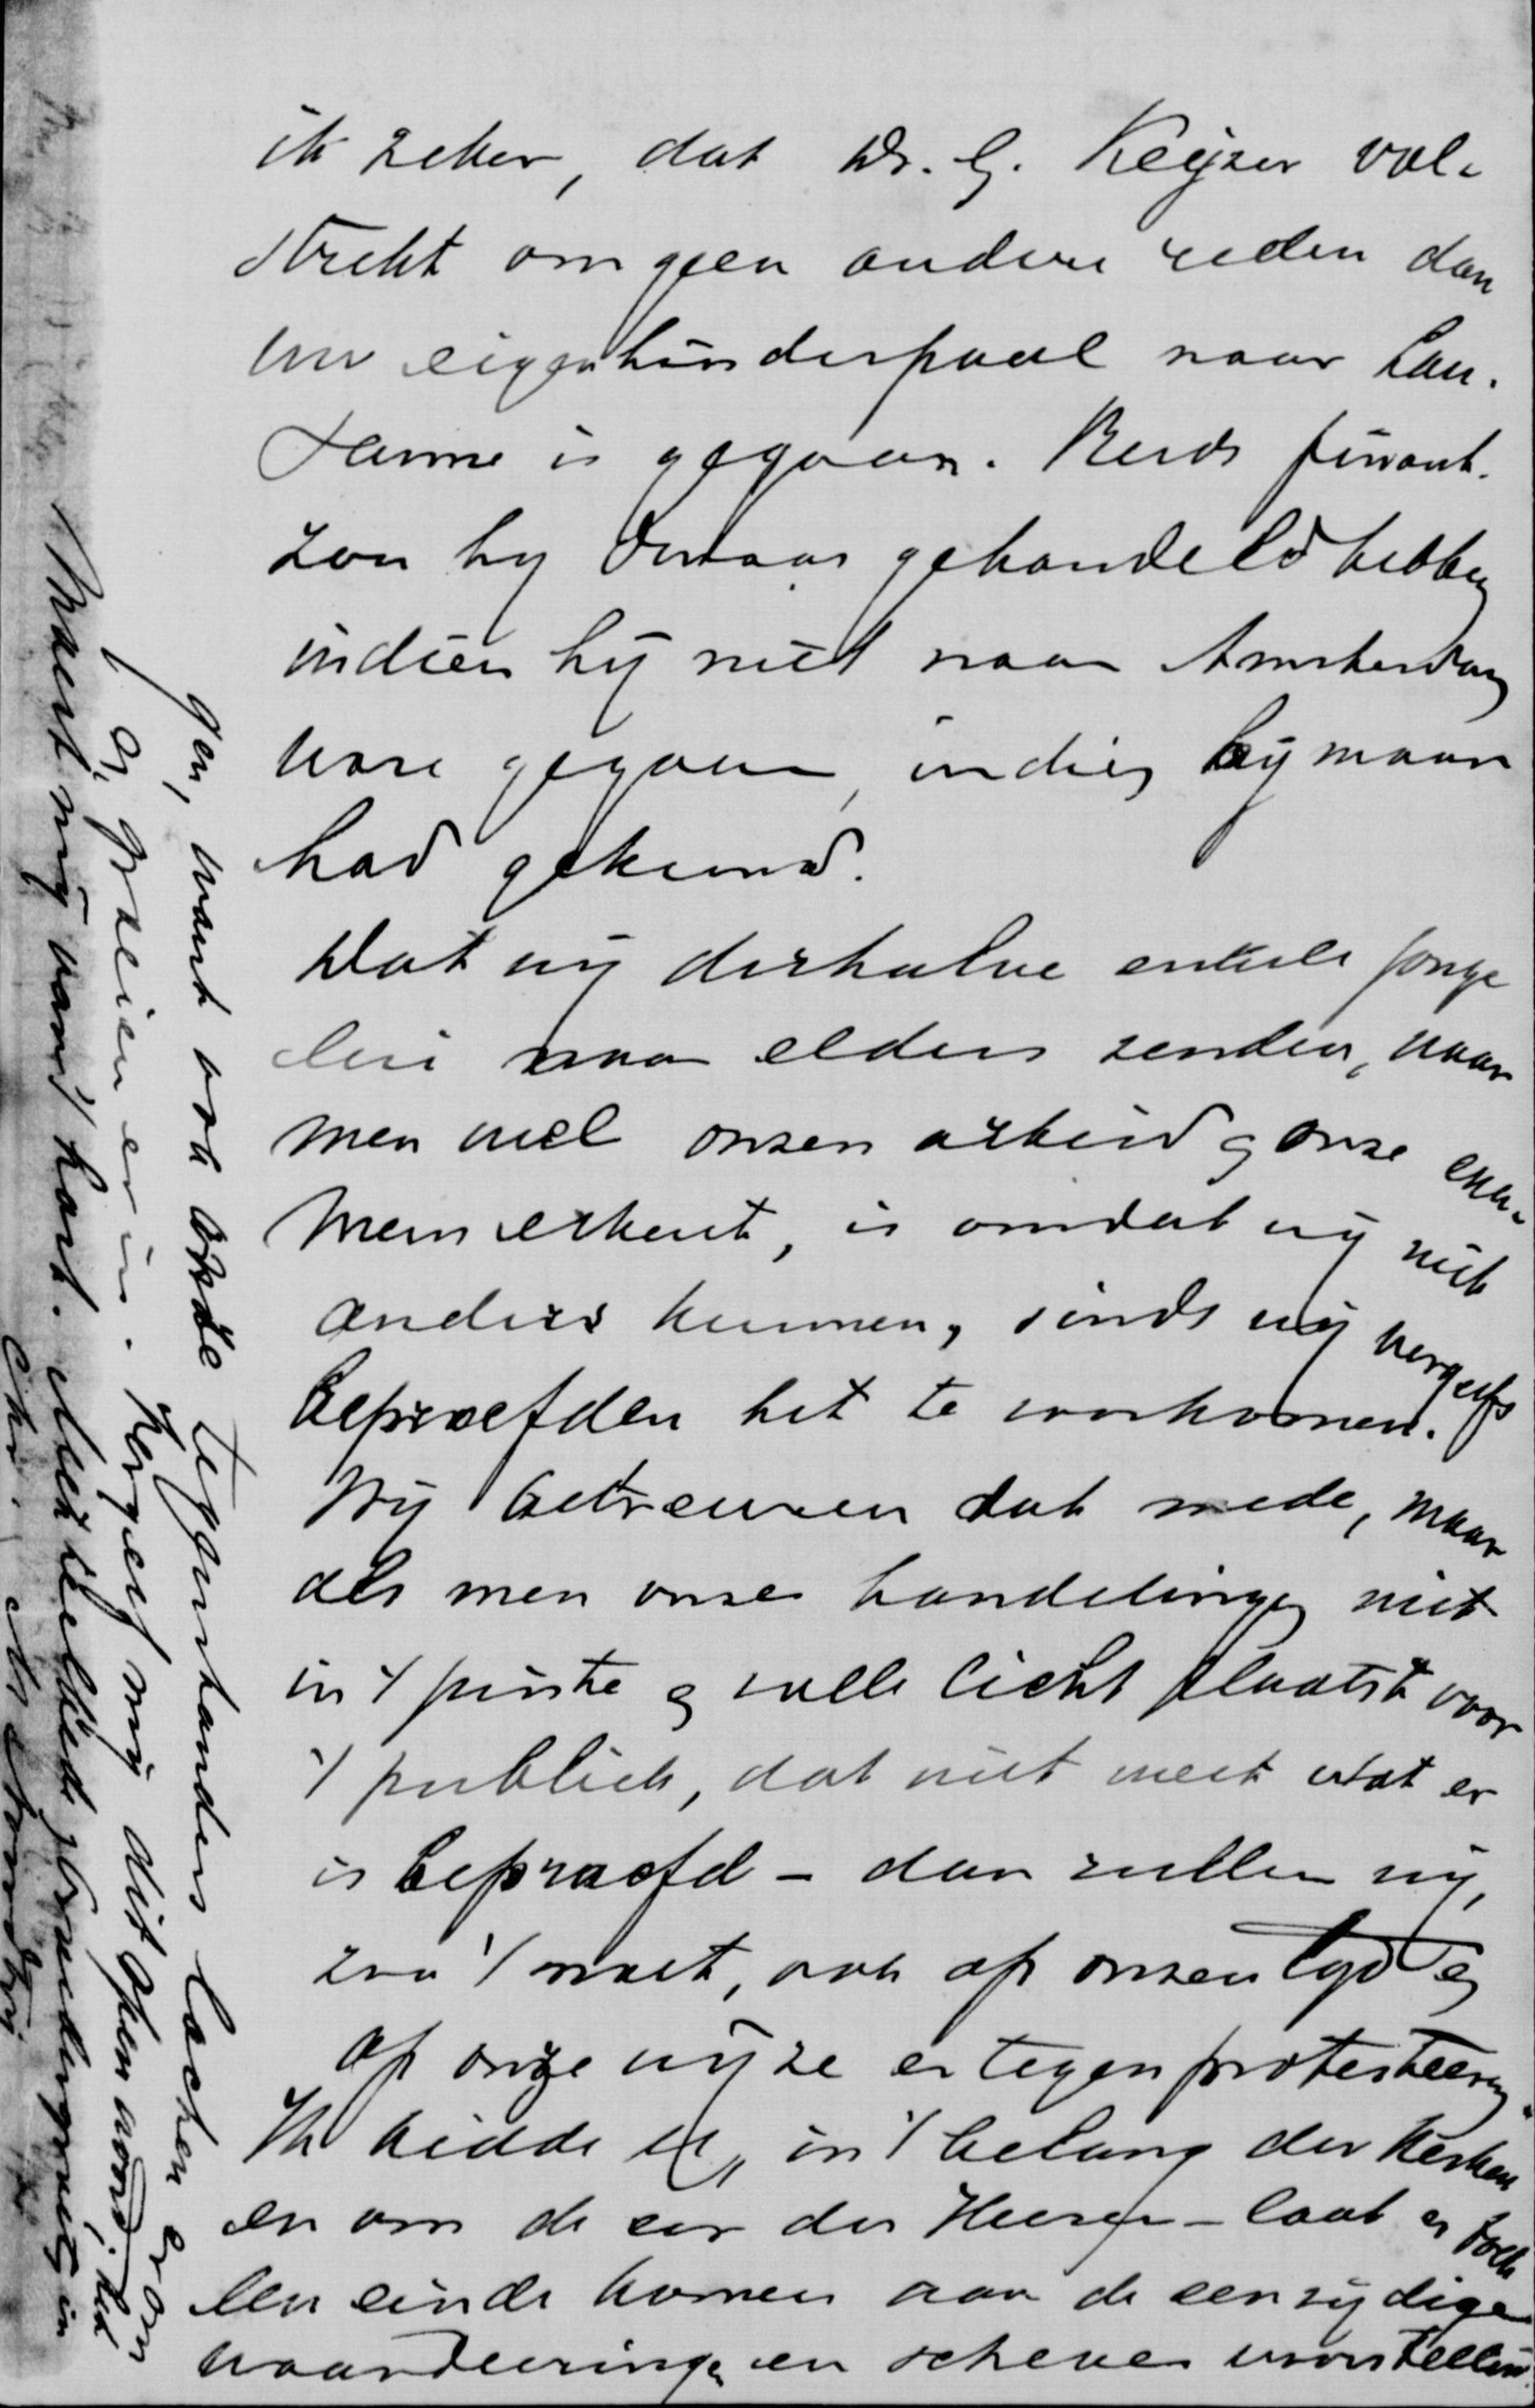 ik zeker, dat Ds. G. Keijzer vol-
strekt om geen andere reden dan
uw eigen hinderpaal naar Lau-
sanne is gegaan. Reeds
zou hy dwaas gehandeld hebben
indien hij niet naar Amsterdam
ware gegaan, indien hij maar
had gekund.
Dat wij derhalve enkele jonge
lui naar elders zenden, waar
men wel onzen arbeid en onze exa-
mens erkent, is omdat wij niet
anders kunnen, sinds wij vergeefs
beproefden het te voorkomen.
Wij betreuren dat mede, maar
als men onze handelingen niet
in 't juiste en volle licht plaatst voor
't publiek, dat niet weet wat er
is beproefd – dan zullen wij,
zoo 't moet, ook op onzen tijd en
op onze wijze er tegen protesteeren.
Ik bidde U, in 't belang der Kerken
en om de eer des Heeren – laat er toch
een einde komen aan de eenzijdige
waardeeringen en scheve voorstellin-
gen, want ook onze tegenstanders lachen erom
en groeien er in. Vergeef mij dit open woord; het
moest mij van 't hart. Met